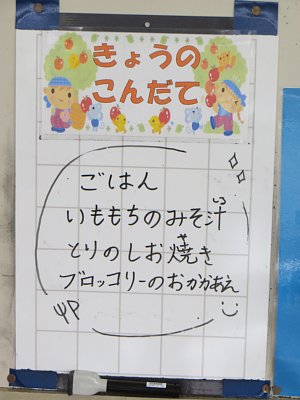 きょうの
こんだて
ごはん
いももちのみそ汁
とりのしお焼き
ブロッコリーのおかかあえ